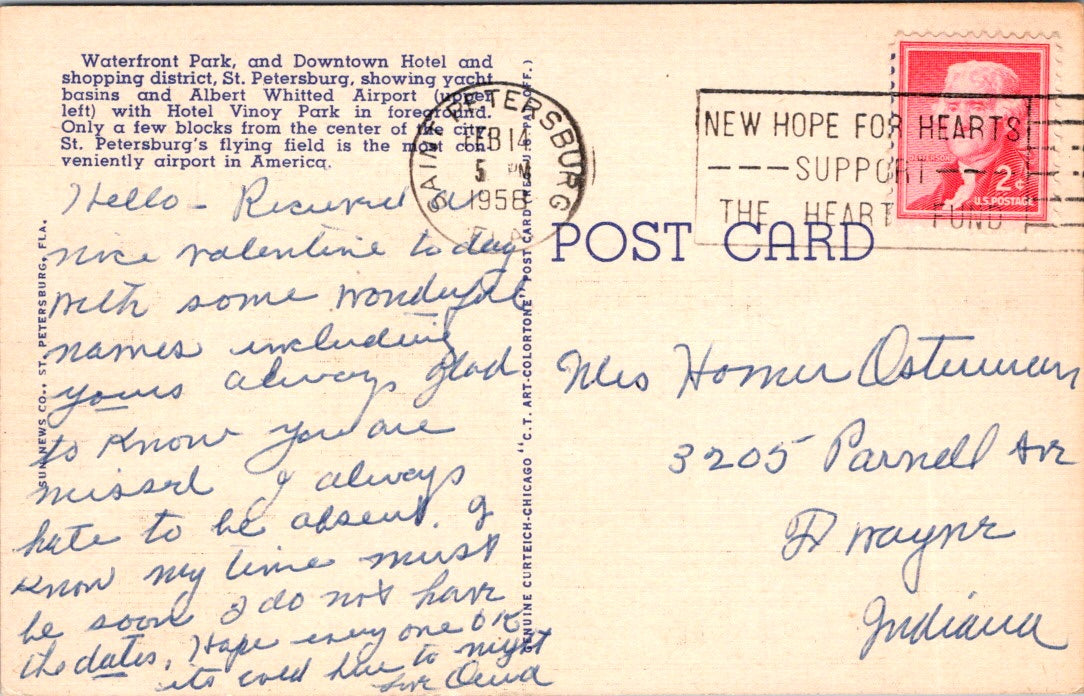 Waterfront Park, and Downtown Hotel and
shopping district, St. Petersburg, showing yacht
basins and Albert Whitted Airport (upper
left) with Hotel Vinoy Park in foreground.
Only a few blocks from the center of the city
St. Petersburg's flying field is the most con-
veniently airport in America.
SAINT PETERSBURG
FEB 14
5 PM
1956
FLA.
NEW HOPE FOR HEARTS
---SUPPORT---
THE HEART FUND
JEFFERSON
2¢
U.S. POSTAGE
POST CARD
SUN NEWS CO., ST. PETERSBURG, FLA.
GENUINE CURTEICH-CHICAGO "C.T. ART-COLORTONE" POST CARD (REG. U.S. PAT. OFF.)
Hello - Received a
nice valentine today
with some wonderful
names including
yours always glad
to know you are
missed I always
hate to be absent. I
know my time must
be soon I do not have
the dates. Hope every one OK
its cold here to night
Love
Mrs Homer Osterman
3205 Parnell Ave
Ft Wayne
Indiana